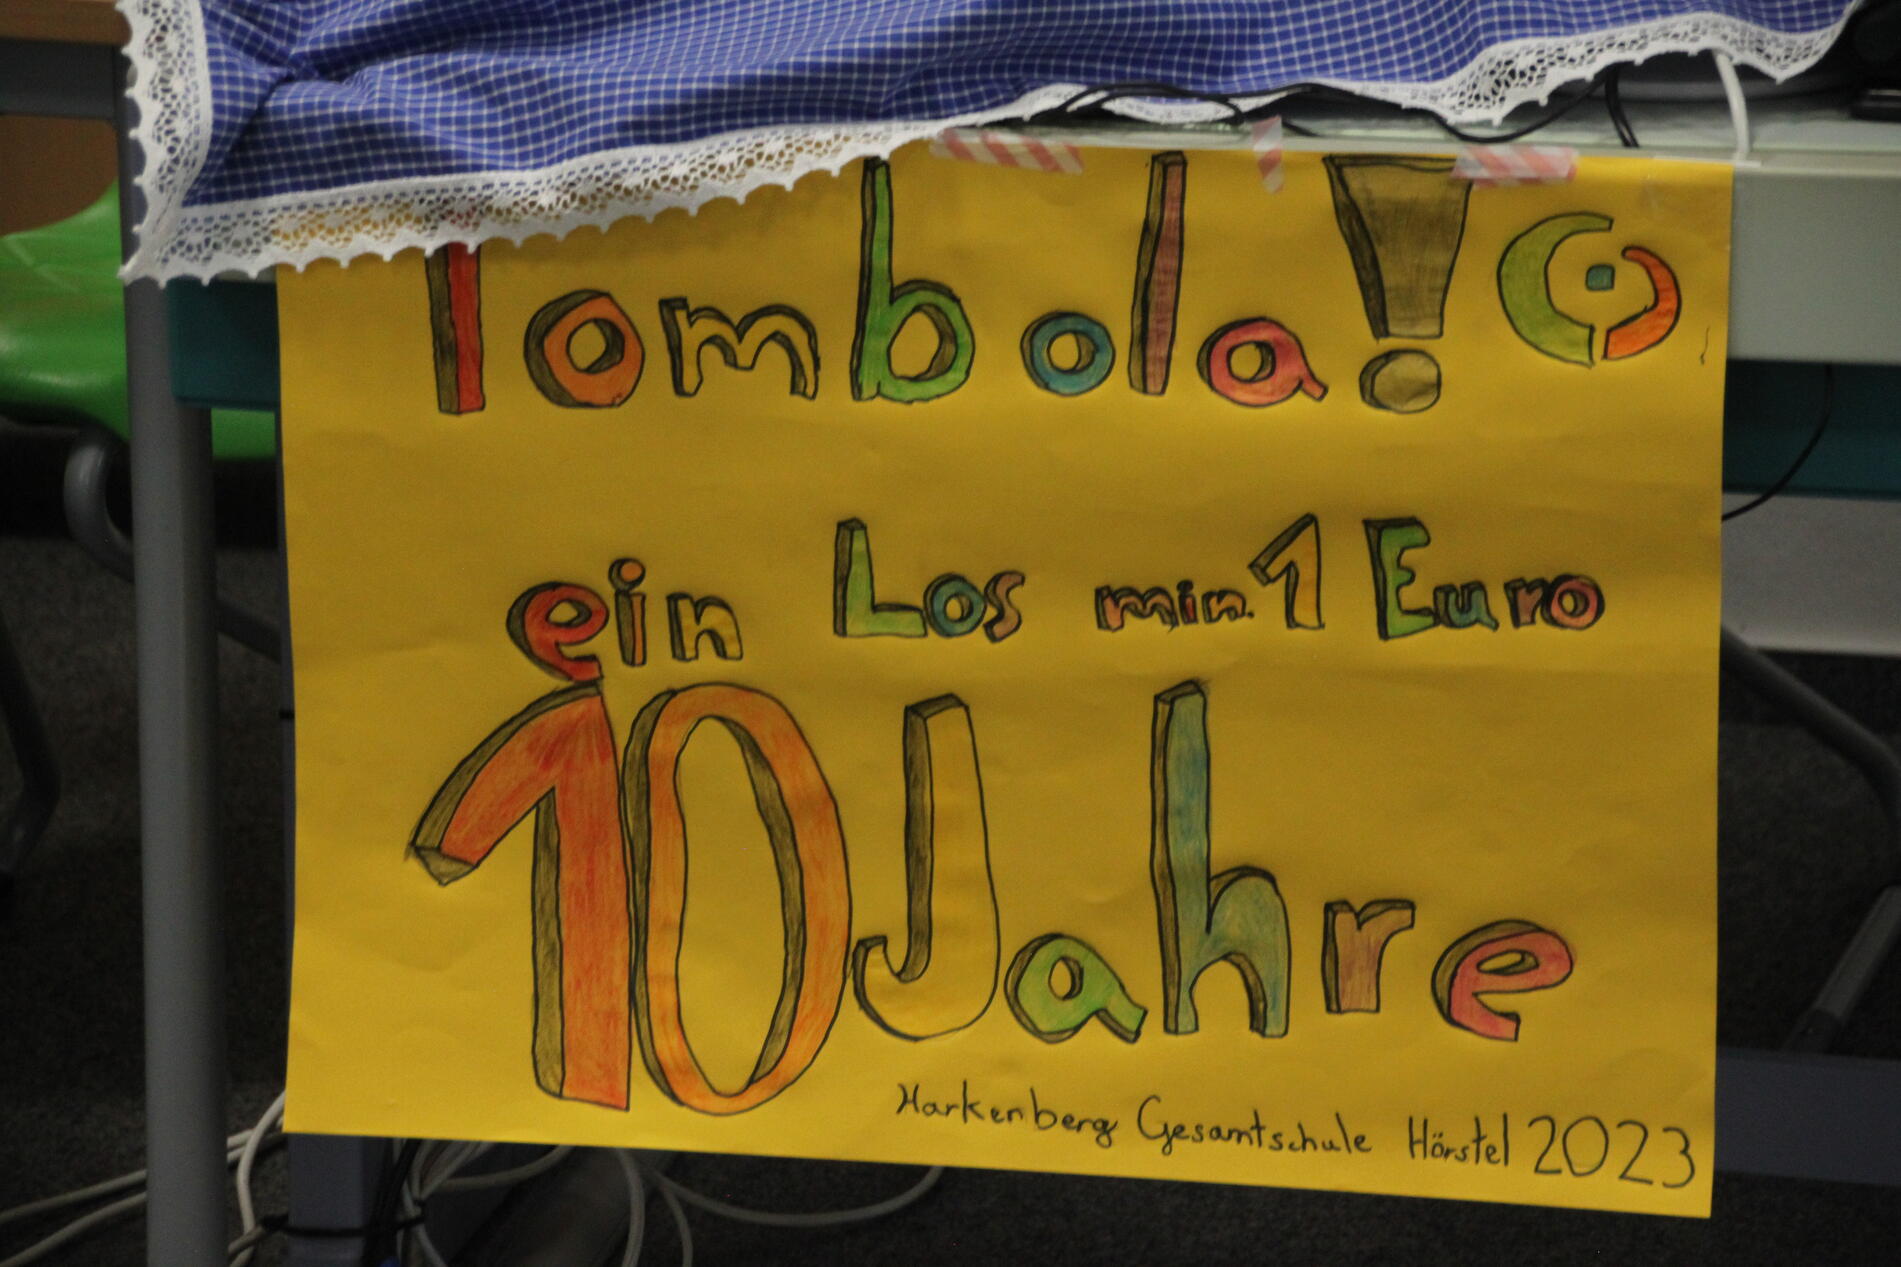 Tombola!
ein Los min. 1 Euro
10 Jahre
Harkenberg Gesamtschule Hörstel 2023